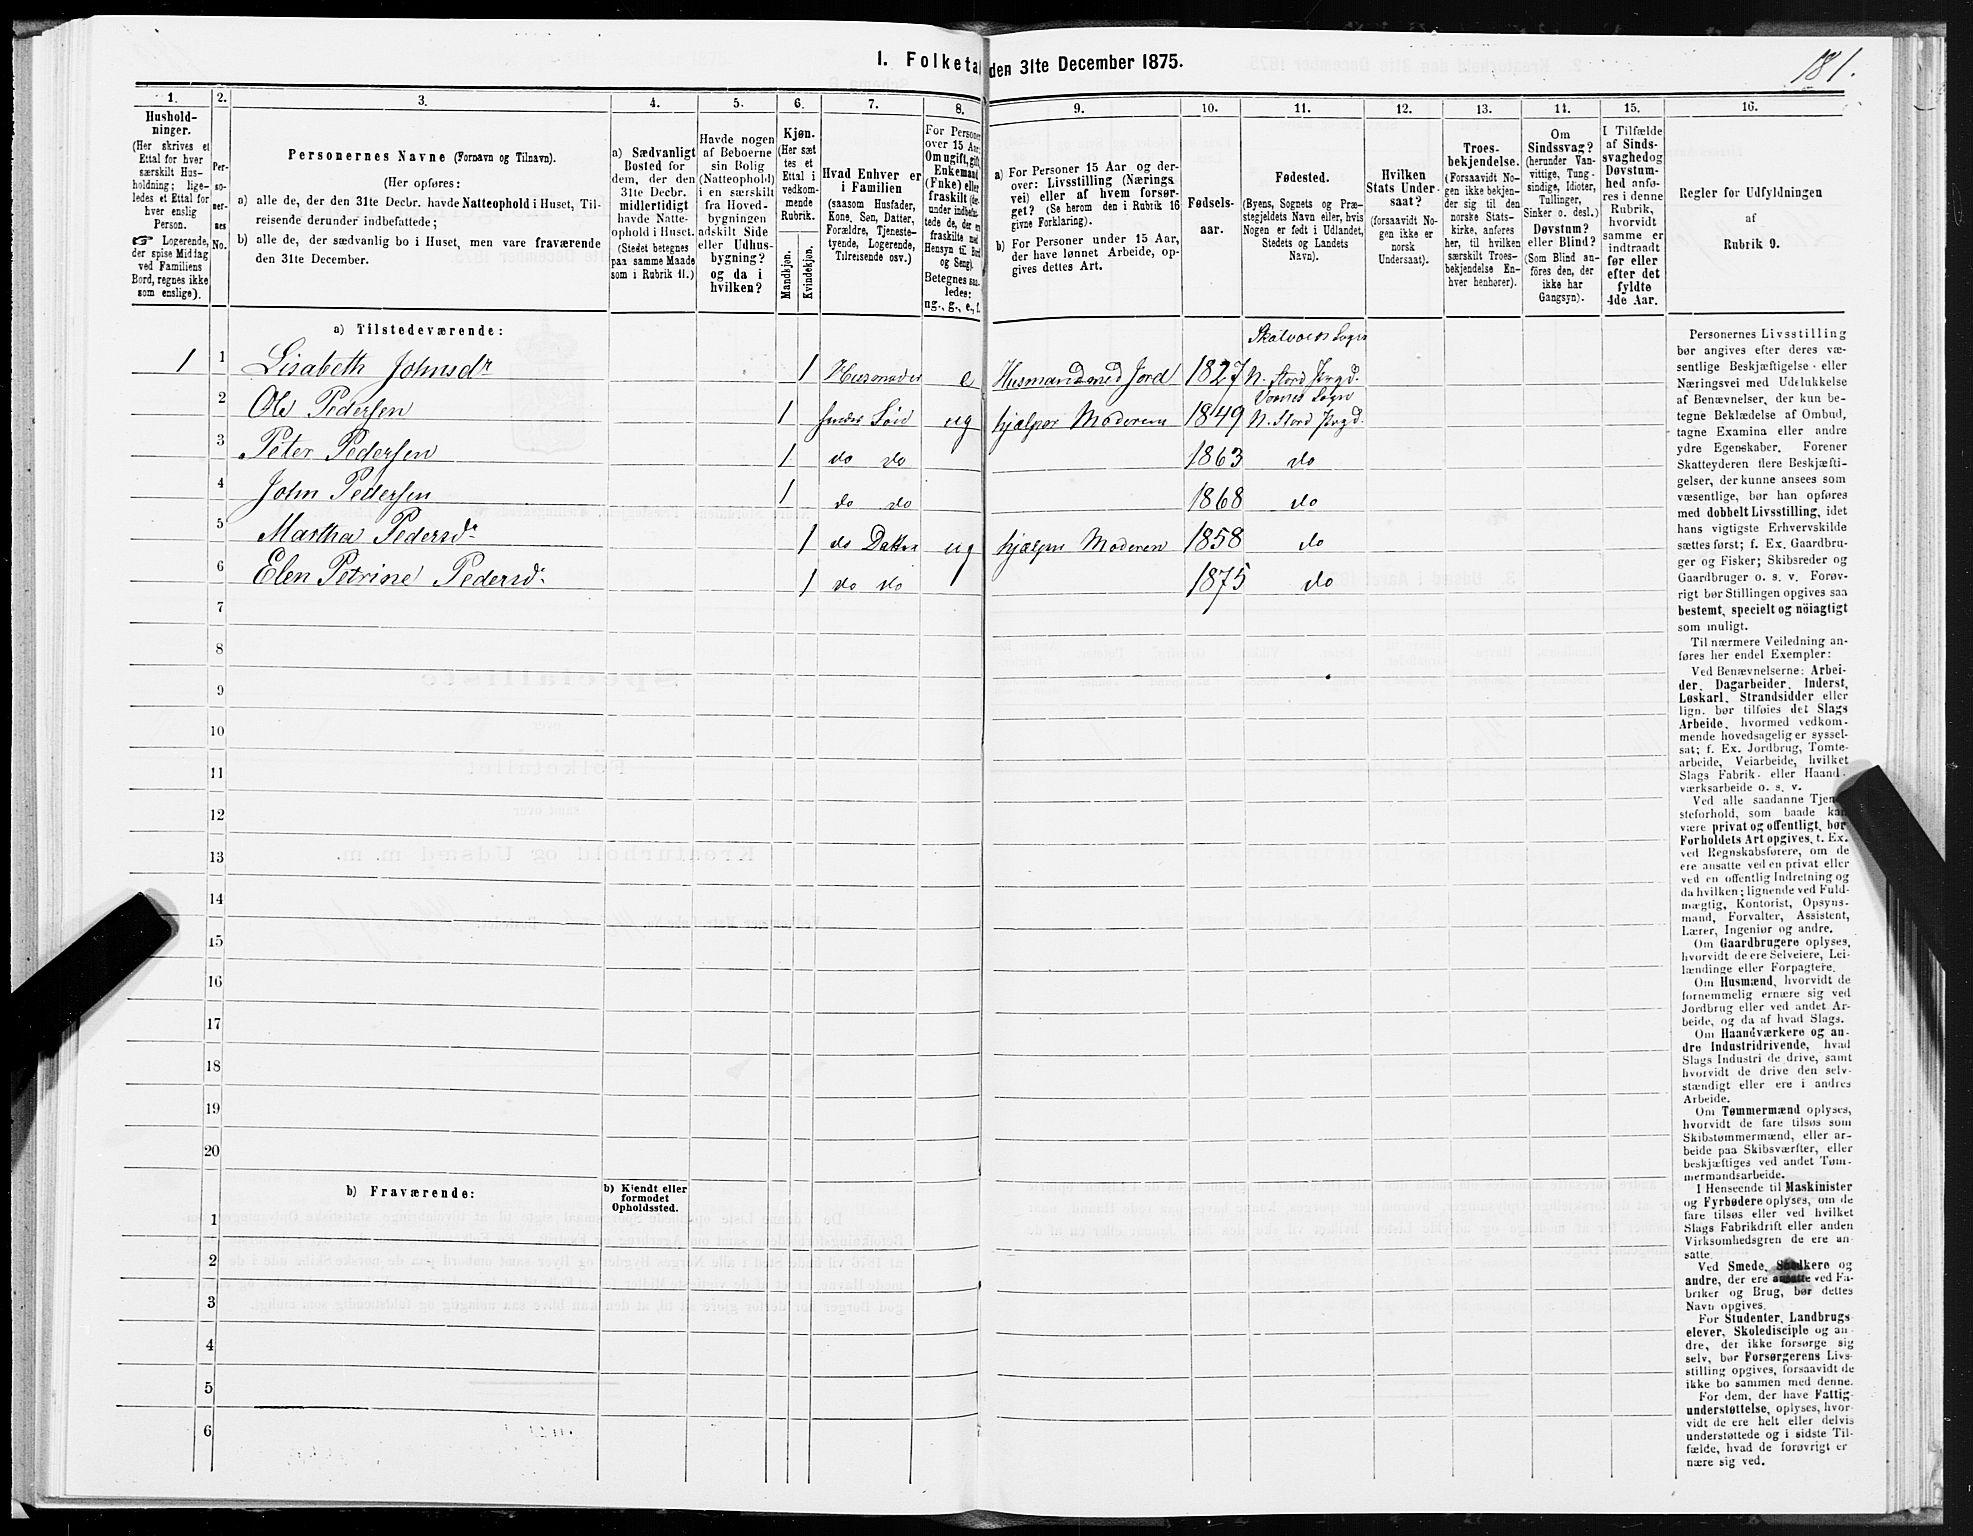 181.
1. Folketal den 31te December 1875.
1. 2. 3. 4. 5. 6. 7. 8. 9. 10. 11. 12. 13. 14. 15. 16.
Hushold-
ninger.
(Her skrives et
Ettal for hver
særskilt Hus-
holdning; lige-
ledes et Ettal for
hver enslig
Person.
☞ Logerende,
der spise Middag
ved Familiens
Bord, regnes ikke
som enslige).
Per-
so-
ner-
nes
No.
Personernes Navne (Fornavn og Tilnavn).
(Her opføres:
a) alle de, der den 31te Decbr. havde Natteophold i Huset, Til-
reisende derunder indbefattede;
b) alle de, der sædvanlig bo i Huset, men vare fraværende
den 31te December.
a) Sædvanligt
Bosted for
dem, der den
31te Decbr.
midlertidigt
havde Natte-
ophold i Huset.
(Stedet betegnes
paa samme Maade
som i Rubrik 11.)
Havde nogen
af Beboerne
sin Bolig
(Natteophold)
i en særskilt
fra Hoved-
bygningen
adskilt Side
eller Udhus-
bygning?
og da i
hvilken?
Kjøn.
(Her sæt
tes et
Ettal i
vedkom-
mende
Rubrik.
Mandkjøn.
Kvindekjøn.
Hvad Enhver er
i Familien
(saasom Husfader,
Kone, Søn, Datter,
Forældre, Tjeneste-
tyende, Logerende,
Tilreisende osv.)
For Personer
over 15 Aar:
Om ugift, gift,
Enkemand
(Enke) eller
fraskilt (der-
under indbefat-
tede de, der ere
fraskilte med
Hensyn til Bord
og Seng).
Betegnes saa-
ledes:
ug., g., e., f.
a) For Personer 15 Aar og der-
over: Livsstilling (Nærings
vei) eller af hvem forsør-
get? (Se herom den i Rubrik 16
givne Forklaring).
b) For Personer under 15 Aar,
der have lønnet Arbeide, op-
gives dettes Art.
Fødsels-
aar.
Fødested.
(Byens, Sognets og Præ-
stegjeldets Navn eller, hvis
Nogen er født i Udlandet,
Stedets og Landets
Navn).
Hvilken
Stats Under-
saat?
(forsaavidt No-
gen ikke er
norsk
Undersaat).
Troes-
bekjendelse.
(Forsaavidt No-
gen ikke bekjen-
der sig til den
norske Stats-
kirke, anføres
her, til hvilken
særskilt Troes-
bekjendelse En-
hver henhører).
Om
Sindssvag?
(herunder Van-
vittige, Tung-
sindige, Idioter,
Tullinger,
Sinker o. desl.)
Døvstum?
eller Blind?
(Som Blind an-
føres den, der
ikke har
Gangsyn).
I Tilfælde
af Sinds-
svaghedog
Døvstum-
hed anfø-
res i denne
Rubrik,
hvorvidt
samme er
indtraadt
før eller
efter det
fyldte
4de Aar.
Regler for Udfyldningen
af
Rubrik 9.
a) Tilstedeværende:
Skatvolds Sogn
1 1 Lisabeth Johnsdr 1 Husmoder e Husmand med Jord 1827 N. Stord Prgd.
Værnes Sogn
2 Ole Pedersen 1 hendes Søn ug hjælper Moderen 1849 N. Stord Prgd.
3 Peter Pedersen 1 do do 1863 do
4 John Pedersen 1 do do 1868 do
5 Martha Pedersd. 1 do Datter ug hjælper Moderen 1858 do
6 Elen Petrine Pedersd. 1 do do 1875 do
7
8
9
10
11
12
13
14
15
16
17
18
19
20
b) Fraværende:
b) Kjendt eller
formodet
Opholdssted.
1
2
3
4
5
6
Personernes Livsstilling
bør angives efter deres væ-
sentlige Beskjæftigelse eller
Næringsvei med Udelukkelse
af Benævnelser, der kun be-
tegne Beklædelse af Ombud,
tagne Examina eller andre
ydre Egenskaber. Forener
Skatteyderen flere Beskjæfti-
gelser, der kunne ansees som
væsentlige, bør han opføres
med dobbelt Livsstilling, idet
hans vigtigste Erhvervskilde
sættes først; f. Ex. Gaardbru-
ger og Fisker; Skibsreder og
Gaardbruger o. s. v. Forøv-
rigt bør Stillingen opgives saa
bestemt, specielt og nöiagtigt
som muligt.
Til nærmere Veiledning an-
føres her endel Exempler:
Ved Benævnelserne: Arbei-
der, Dagarbeider, Inderst,
Løskarl, Strandsidder eller
lign. bør tilføies det Slags
Arbeide, hvormed vedkom-
mende hovedsagelig er syssel-
sat; f. Ex. Jordbrug, Tomte-
arbeide, Veiarbeide, hvilket
Slags Fabrik- eller Haand-
værksarbeide o. s. v.
Ved alle saadanne Tjene-
steforhold, som baade kan
være privat og offentligt, bør
Forholdets Art opgives, t. Ex.
ved Regnskabsførere, om de
ere ansatte ved en privat eller
ved en offentlig Indretning og
da hvilken; lignende ved Fuld-
mægtig, Kontorist, Opsyns-
mand, Forvalter, Assistent,
Lærer, Ingeniør og andre.
Om Gaardbrugere oplyses,
hvorvidt de ere Selveiere, Lei-
lændinge eller Forpagtere.
Om Husmænd, hvorvidt de
fornemmelig ernære sig ved
Jordbrug eller ved andet Ar-
beide, og da af hvad Slags.
Om Haandværkere og an-
dre Industridrivende, hvad
Slags Industri de drive, samt
hvorvidt de drive den selv-
stændigt eller ere i andres
Arbeide.
Om Tømmermænd oplyses,
hvorvidt de fare tilsøs som
Skibstømmermænd, eller ar-
beide paa Skibsværfter, eller
beskjæftiges ved andet Tøm-
mermandsarbeide.
I Henseende til Maskinister
og Fyrbødere oplyses, om de
fare tilsøs eller ved hvilket
Slags Fabrikdrift eller anden
Virksomhedsgren de ere an-
satte.
Ved Smede, Snedkere og
andre, der ere ansatte ved Fa-
briker og Brug, bør dettes
Navn opgives.
For Studenter, Landbrugs-
elever, Skoledisciple og an-
dre, der ikke forsørge sig
selv, bør Forsørgerens Livs-
stilling opgives, forsaavidt de
ikke bo sammen med denne.
For dem, der have Fattig-
understøttelse, oplyses, hvor-
vidt de ere helt eller delvis
understøttede og i sidste Til-
fælde, hvad de forøvrigt er
nære sig ved.